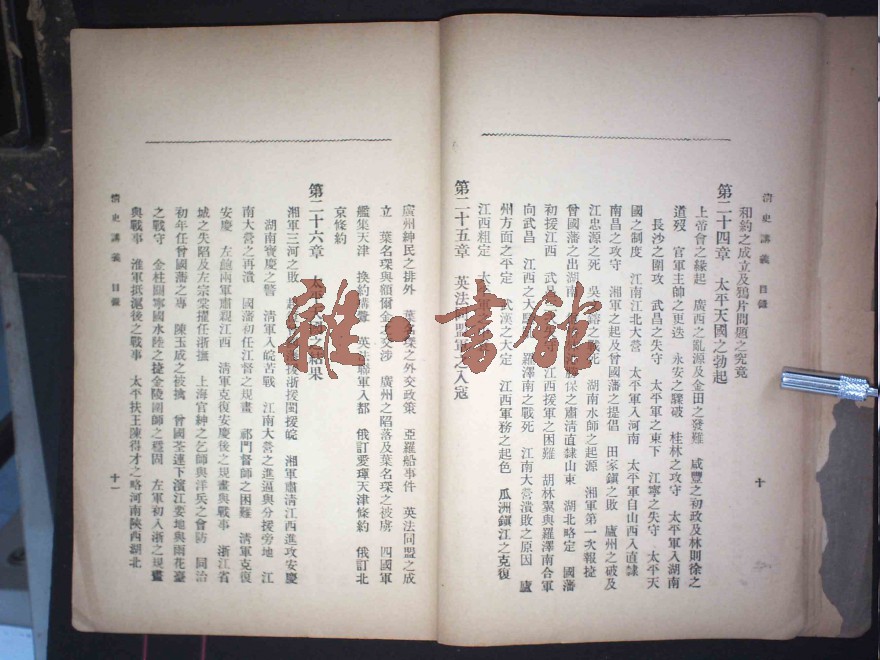 清史講義 目錄
和約之成立及鴉片問題之究竟
第二十四章 太平天國之勃起
上帝會之緣起 廣西之亂源及金田之發難 咸豐之初政及林則徐之
道歿 官軍主帥之更迭 永安之驟破 桂林之攻守 太平軍入湖南
長沙之圍攻 武昌之失守 太平軍之東下 江寧之失守 太平天
國之制度 江南江北大營 太平軍入河南 太平軍自山西入直隸
南昌之攻守 湘軍之起及曾國藩之提倡 田家鎮之敗 廬州之破及
江忠源之死 吳 之戰死 湖南水師之起源 湘軍第一次報捷
曾國藩之出湖南 保之肅清直隸山東 湖北略定 國藩
初援江西 武昌 守 江西援軍之困難 胡林翼與羅澤南合軍
向武昌 江西之大 羅澤南之戰死 江南大營潰敗之原因 廬
州方面之平定 武漢之大定 江西軍務之起色 瓜洲鎮江之克復
江西粗定 太 軍
第二十五章 英法同盟軍之入寇
十
廣州紳民之排外 葉名琛之外交政策 亞羅船事件 英法同盟之成
立 葉名琛與額爾金之交涉 廣州之陷落及葉名琛之被虜 四國軍
艦集天津 換約 英法聯軍入都 俄訂愛琿天津條約 俄訂北
京條約
第二十六章 太平天國之結果
湘軍三河之敗 援浙援閩援皖 湘軍肅清江西進攻安慶
湖南寶慶之警 清軍入皖苦戰 江南大營之進逼與分援旁地 江
南大營之再潰 國藩初任江督之規畫 祁門督師之困難 清軍克復
安慶 左鮑兩軍肅親江西 清軍克復安慶後之規畫與戰事 浙江省
城之失陷及左宗棠擢任浙撫 上海官紳之乞師與洋兵之會防 同治
初年任曾國藩之專 陳玉成之被擒 曾國荃連下濱江要地與雨花臺
之戰守 金柱關寧國水陸之捷金陵圍師之穩固 左軍初入浙之規畫
與戰事 淮軍抵滬後之戰事 太平扶王陳得才之略河南陝西湖北
清史講義 目錄
十一
雜·書館